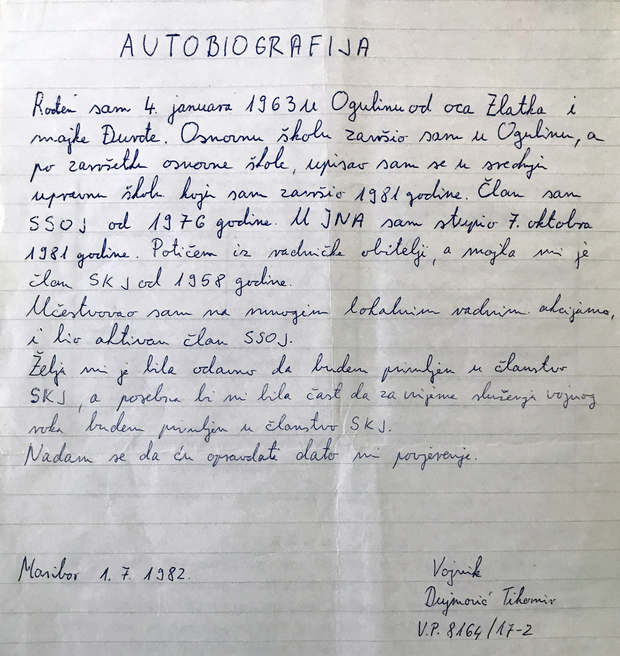 AUTOBIOGRAFIJA
Rođen sam 4. januara 1963 u Ogulinu od oca Zlatka i
majke Đurđe. Osnovnu školu završio sam u Ogulinu, a
po završetku osnovne škole, upisao sam se u srednju
upravnu školu koju sam završio 1981 godine. Član sam
SSOJ od 1976 godine. U JNA sam stupio 7. oktobra
1981 godine. Potičem iz radničke obitelji, a majka mi je
član SKJ od 1958 godine.
Učestvovao sam na mnogim lokalnim radnim akcijama,
i bio aktivan član SSOJ.
Želja mi je bila odavno da budem primljen u članstvo
SKJ, a posebna bi mi bila čast da za vrijeme služenja vojnog
roka budem primljen u članstvo SKJ.
Nadam se da ću opravdati dato mi povjerenje.
Maribor 1. 7. 1982.
Vojnik
Dujmović Tihomir
V.P. 8164/17-2